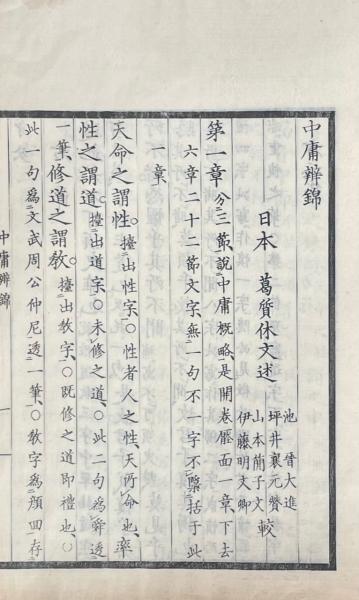 中庸辨錦
日本 葛質休文述
池 晉大進
坪井襄元贊
山本蘭子文
伊藤明文卿
較
第一章分三節說中庸概略是開卷壓面一章下去
六章二十二節文字無一句不一字不槩括于此
一章
天命之謂性○擡出性字○性者人之性天所命也率
性之謂道○擡出道字○未修之道○此二句爲舜透
一筆修道之謂教○擡出教字○既修之道即禮也○
此一句爲文武周公仲尼透一筆○教字爲顏回存
中庸辨錦
一